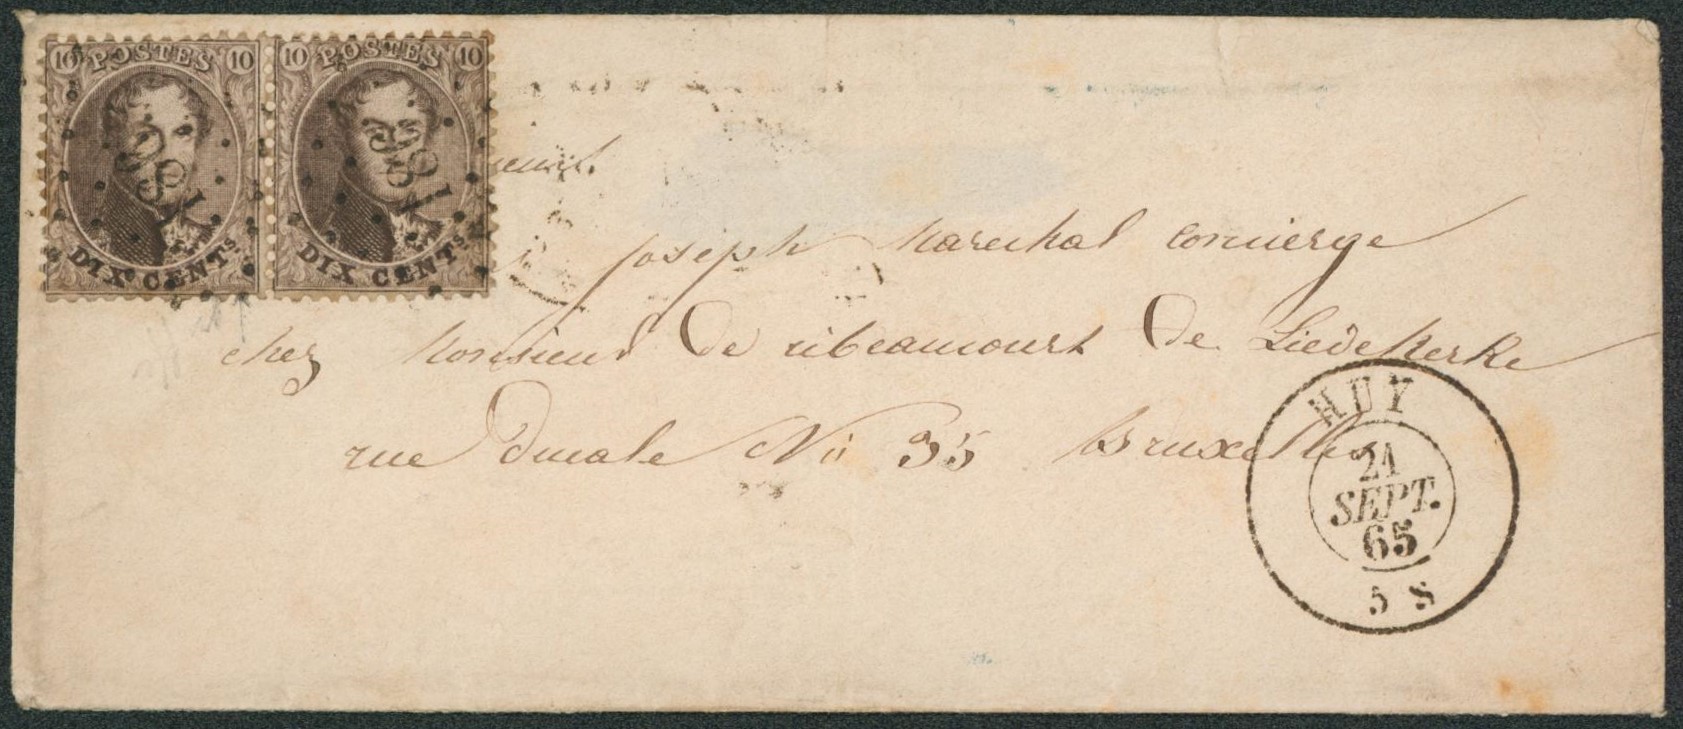 10 POSTES 10
10 POSTES 10
186
186
DIX CENTS
DIX CENTS
Joseph Marechal concierge
chez Monsieur De ribeaucourt De Liedekerke
rue Ducale No 35 Bruxelles
HUY
21
SEPT.
65
5 S